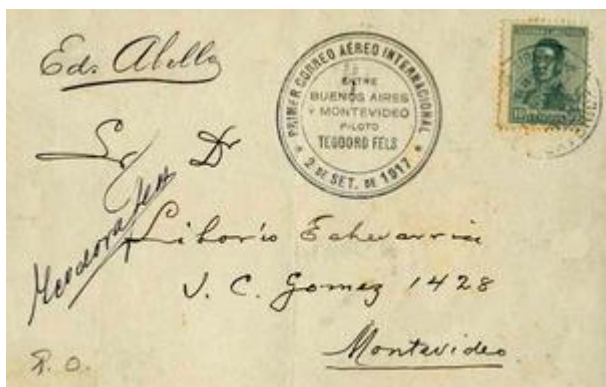 Ed. Abella
PRIMER CORREO AÉREO INTERNACIONAL
ENTRE
BUENOS AIRES
Y MONTEVIDEO
PILOTO
TEODORO FELS
2 DE SET. DE 1917
Sr Dr
Teodoro Fels
Liborio Echevarria
J. C. Gomez 1428
Montevideo